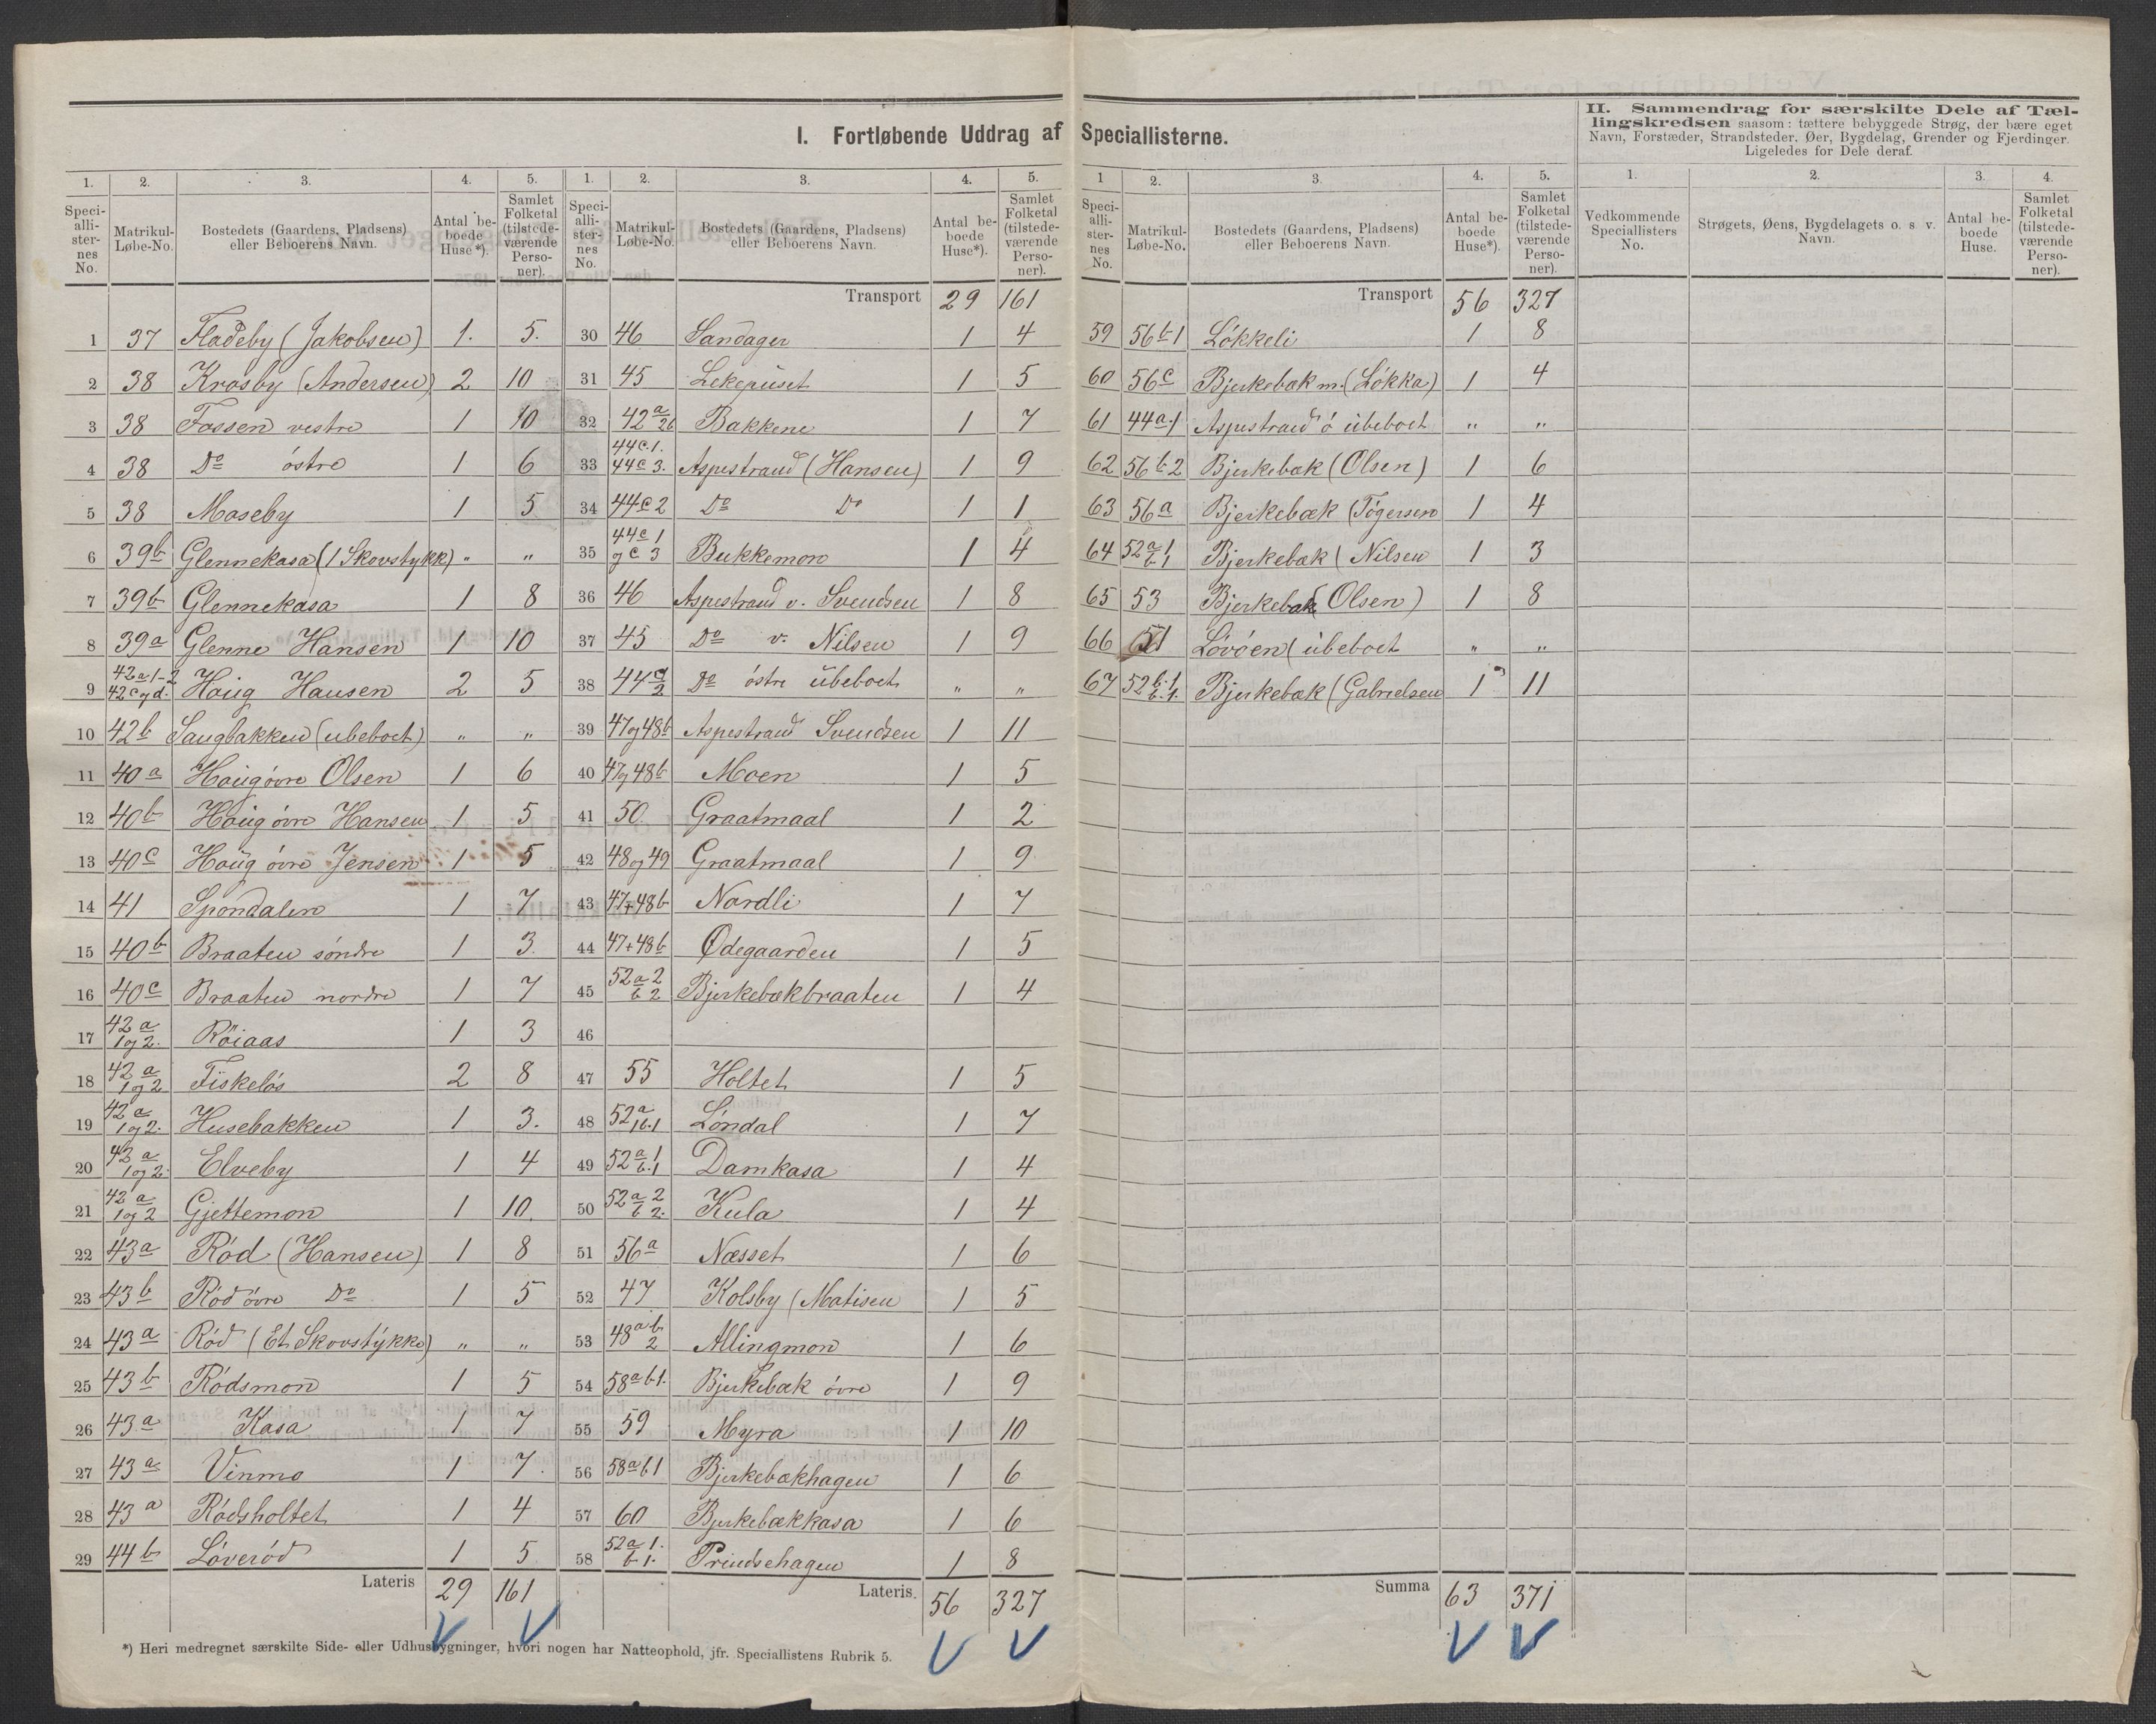 I. Fortløbende Uddrag af Speciallisterne.
II. Sammendrag for særskilte Dele af Tæl-
lingskredsen saasom: tættere bebyggede Strøg, der bære eget
Navn, Forstæder, Strandsteder, Øer, Bygdelag, Grender og Fjerdinger.
Ligeledes for Dele deraf.
1. 2. 3. 4. 5.
Speci-alli-ster-nes No. Matrikul-Løbe-No. Bostedets (Gaardens, Pladsens) eller Beboerens Navn. Antal be-boede Huse*). Samlet Folketal (tilstede-værende Perso-ner).
1 37 Fladeby (Jakobsen) 1. 5.
2 38 Krosby (Andersen) 2 10
3 38 Fossen vestre 1 10
4 38 Do östre 1 6
5 38 Moseby 1 5
6 39b Glennekasa (1 Skovstykk) " "
7 39b Glennekasa 1 8
8 39a Glenne Hansen 1 10
9 42a1-2 42c og d. Haug Hansen 2 5
10 42b Saugbakken (ubeboet) " "
11 40a Haug övre Olsen 1 6
12 40b Haug övre Hansen 1 5
13 40c Haug övre Jensen 1 5
14 41 Spondalen 1 7
15 40b Braaten söndre 1 3
16 40c Braaten nordre 1 7
17 42a 1og2. Röiaas 1 3
18 42a 1og2 Fiskelös 2 8
19 42a 1og2. Husebakken 1 3.
20 43a 1og2. Elveby 1 4
21 42a 1og2 Gjettemon 1 10.
22 43a Röd (Hansen) 1 8
23 43b Röd övre Do 1 5
24 43a Röd (Et Skovstykke) " "
25 43b Rödsmon 1 5
26 43a Kasa 1 7
27 43a Vinmo 1 7.
28 43a Rödsholtet 1 4
29 44b Löveröd 1 5
Lateris 29 161
1. 2. 3. 4. 5.
Speci-alli-ster-nes No. Matrikul-Løbe-No. Bostedets (Gaardens, Pladsens) eller Beboerens Navn. Antal be-boede Huse*). Samlet Folketal (tilstede-værende Perso-ner).
Transport 29 161
30 46 Sandager 1 4
31 45 Lekepuset 1 5
32 42a 26 Bakkene 1 7
33 44c.1. 44c 3. Aspestrand (Hansen) 1 9
34 44c2 Do Do 1 1
35 44c1 og c 3 Bukkemon 1 4
36 46 Aspestrand v. Svendsen 1 8
37 45 Do v. Nilsen 1 9
38 44 2 Do östre ubeboet " "
39 47og48b Aspestrand Svendsen 1 11
40 47og48b Moen 1 5
41 50 Graatmaal 1 2
42 48og49 Graatmaal 1 9
43 47+48b Nordli 1 7
44 47+48b Ødegaarden 1 5
45 52a2 b2 Bjerkebækbraaten 1 4
46
47 55 Holtet 1 5
48 52a 1b.1 Löndal 1 7
49 52a1 b.1 Damkasa 1 4
50 52a2 b2. Kula 1 4
51 56a Næsset 1 6
52 47 Kolsby (Matisen 1 5
53 48ab 2 Allingmon 1 6
54 58ab1. Bjerkebæk övre 1 9
55 59 Myra 1 10
56 58ab1 Bjerkebækhagen 1 6
57 60 Bjerkebækkasa 1 6
58 52a1. b1. Prindsehagen 1 8
Lateris. 56 327
*) Heri medregnet særskilte Side- eller Udhusbygninger, hvori nogen har Natteophold, jfr. Speciallistens Rubrik 5.
1 2. 3. 4. 5.
Speci-alli-ster-nes No. Matrikul-Løbe-No. Bostedets (Gaardens, Pladsens) eller Beboerens Navn. Antal be-boede Huse*). Samlet Folketal (tilstede-værende Perso-ner).
Transport 56 327
59 56b1 Lökkeli 1 8
60 56c Bjerkebæk m. (Lökka) 1 4
61 44a.1 Aspestrand ö ubeboet " "
62 56b2 Bjerkebæk (Olsen) 1 6
63 56a Bjerkebæk (Tögersen 1 4
64 52a1 b1 Bjerkebæk (Nilsen 1 3
65 53 Bjerkebæk (Olsen) 1 8
66 51 Lövöen (ubeboet " "
67 52b.1 b.1. Bjerkebæk (Gabrielsen 1 11
Summa 63 371
1. 2. 3. 4.
Vedkommende Speciallisters No. Strøgets, Øens, Bygdelagets o. s v. Navn. Antal be-boede Huse. Samlet Folketal (tilstede-værende Perso-ner).